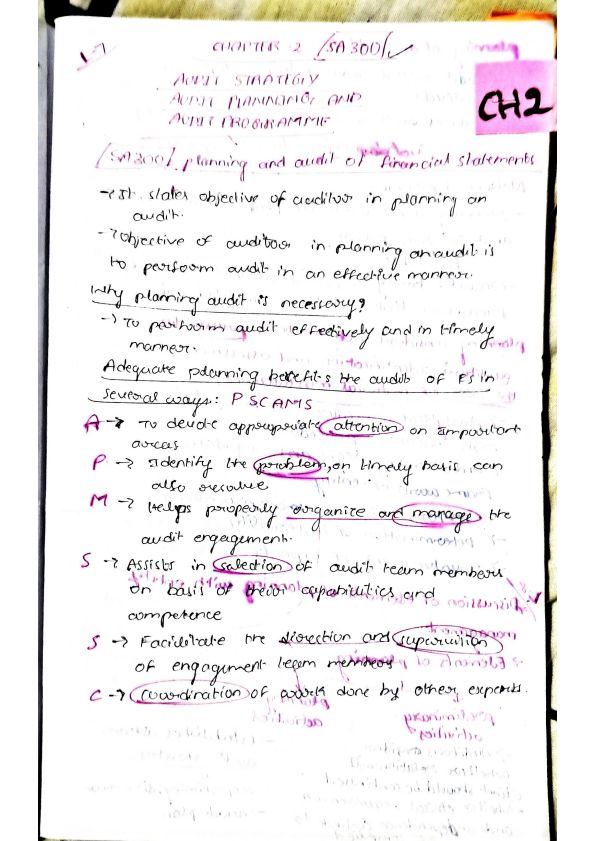 CHAPTER 2 [SA300]
AUDIT STRATEGY
AUDIT PLANNING AND
AUDIT PROGRAMME
CH2
[SA300] planning and audit of financial statements
→ It states objective of auditor in planning an
audit.
→ Objective of auditor in planning an audit is
to perform audit in an effective manner.
Why planning audit is necessary?
→ To perform audit effectively and in timely
manner.
Adequate planning benefits the audit of FS in
several ways: PSCAMS
A → To devote appropriate attention on important
areas
P → Identify the problem, on timely basis can
also resolve
M → Helps properly organize and manage the
audit engagement.
S → Assists in selection of audit team members
on basis of their capabilities and
competence
S → Facilitate the direction and supervision
of engagement team members
C → Coordination of work done by other experts.